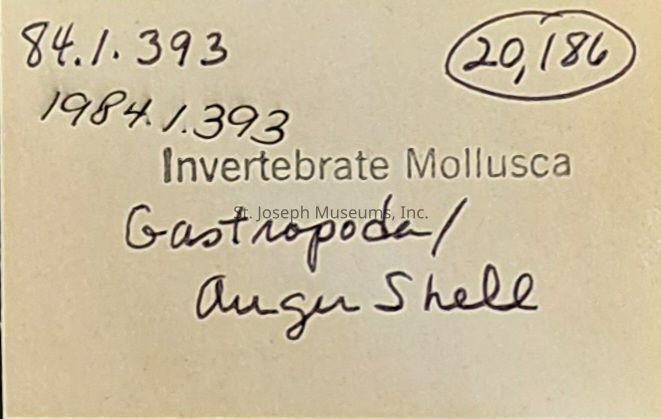 84.1.393
20,186
1984.1.393
Invertebrate Mollusca
St. Joseph Museums, Inc.
Gastropoda/
Auger Shell